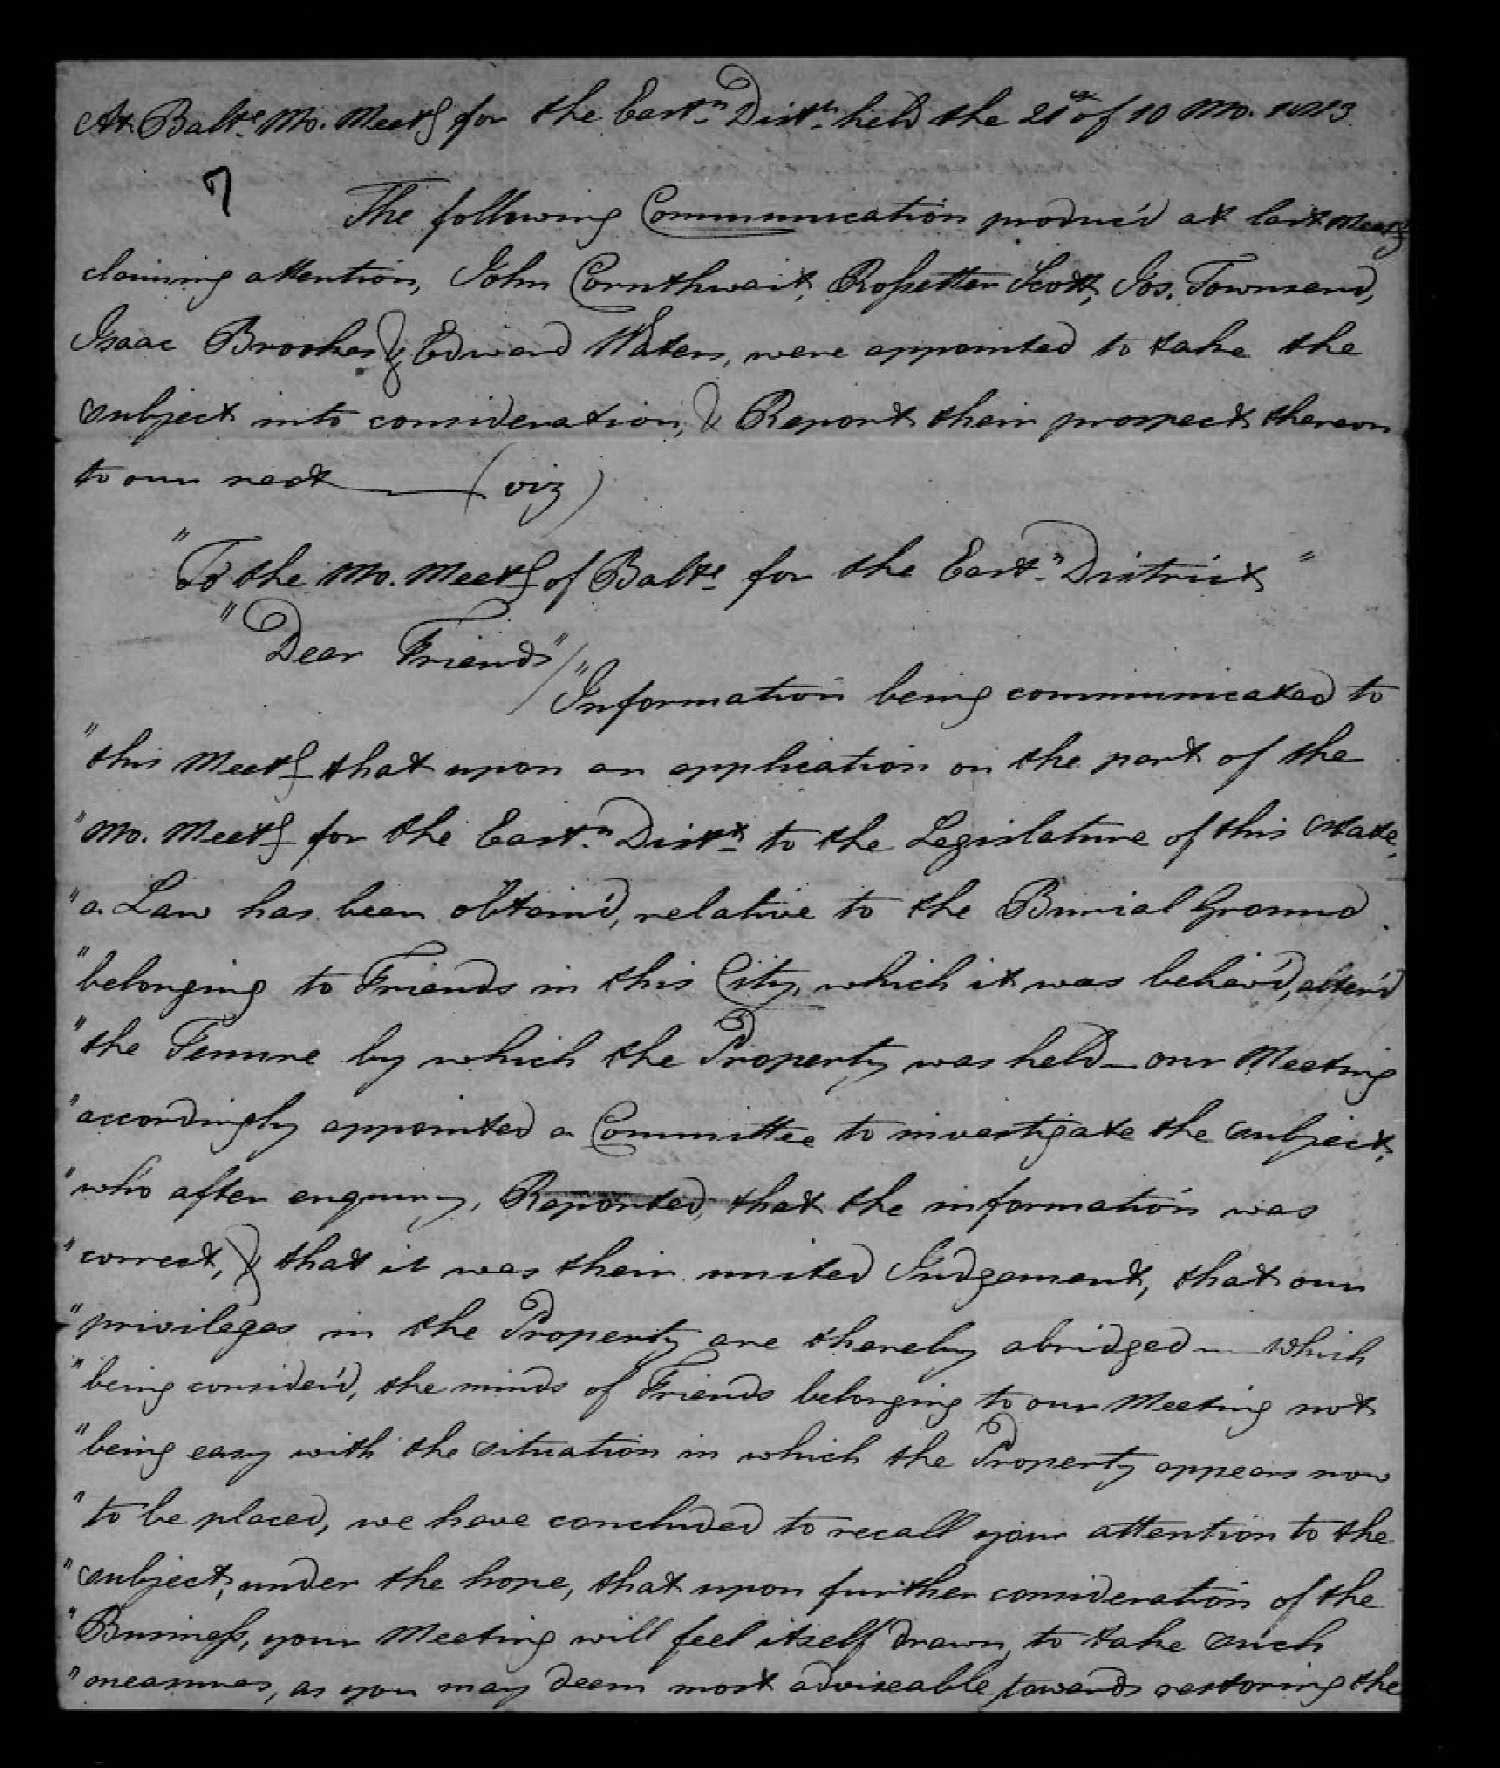 At Balte. Mo. Meetg for the Eastn. Distt. held the 21st of 10 Mo. 1813
7
The following Communication produc'd at last Meetg
claiming attention, John Cornthwait, Rossetter Scott, Jos. Townsend,
Isaac Brookes & Edward Waters, were appointed to take the
subject into consideration, & Report their prospect thereon
to our next — (viz)
"To the Mo. Meetg of Balte. for the Eastn. District"
"Dear Friends"/
"Information being communicated to
"this Meetg that upon an application on the part of the
"Mo. Meetg for the Eastn. Distt. to the Legislature of this State,
"a Law has been obtain'd, relative to the Burial Ground
"belonging to Friends in this City, which it was believ'd, alter'd
"the Tenure by which the Property was held — our Meeting
"accordingly appointed a Committee to investigate the subject,
"who after enquiry, Reported, that the information was
"correct, & that it was their united Judgement, that our
"privileges in the Property are thereby abridged — which
"being consider'd, the minds of Friends belonging to our Meeting not
"being easy with the situation in which the Property appears now
"to be placed, we have concluded to recall your attention to the
"subject, under the hope, that upon further consideration of the
"Business, your Meeting will feel itself drawn, to take such
"measures, as you may deem most adviseable towards restoring the